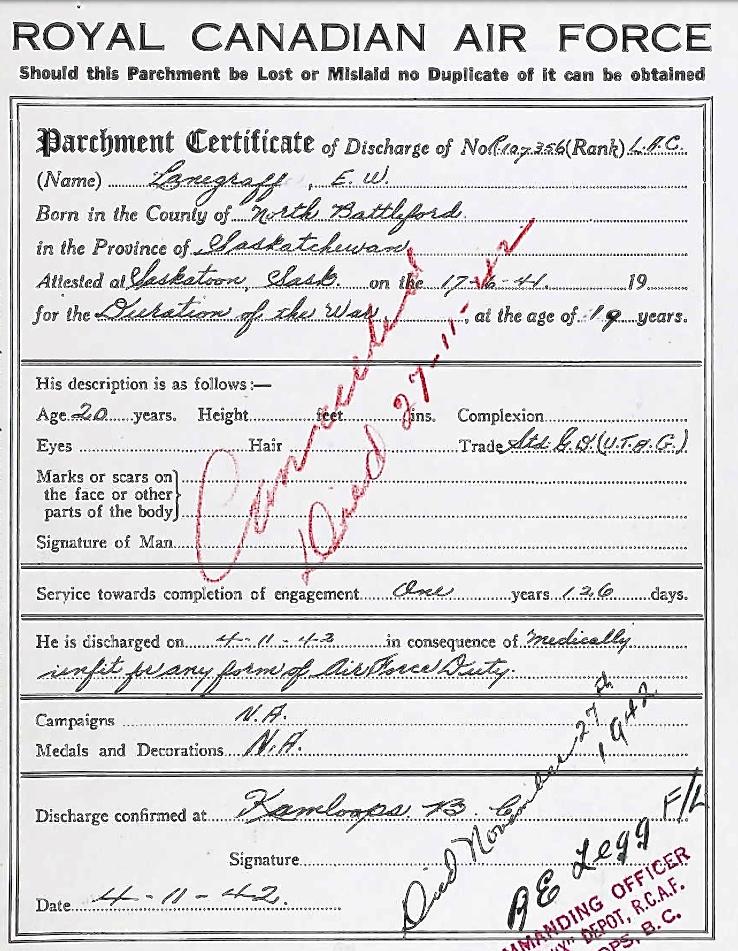 ROYAL CANADIAN AIR FORCE
Should this Parchment be Lost or Mislaid no Duplicate of it can be obtained
Parchment Certificate of Discharge of No R127356 (Rank) L.A.C.
(Name) Lanegraff, E. W.
Born in the County of North Battleford
in the Province of Saskatchewan
Attested at Saskatoon, Sask. on the 17-6-41. 19
for the Duration of the War, at the age of 19 years.
His description is as follows:—
Age 20 years. Height feet ins. Complexion
Eyes Hair Trade Std. G.D. (U.T.A.G.)
Marks or scars on
the face or other
parts of the body
Signature of Man
Cancelled
Died 27-11-42
Service towards completion of engagement One years 126 days.
He is discharged on 4-11-42 in consequence of Medically
unfit for any form of Air Force Duty.
Campaigns N.A.
Medals and Decorations N.A.
Discharge confirmed at Kamloops B C
Signature
Date 4-11-42.
Died November 27th
1942
A E Legg F/L
COMMANDING OFFICER
DEPOT, R.C.A.F.
B.C.